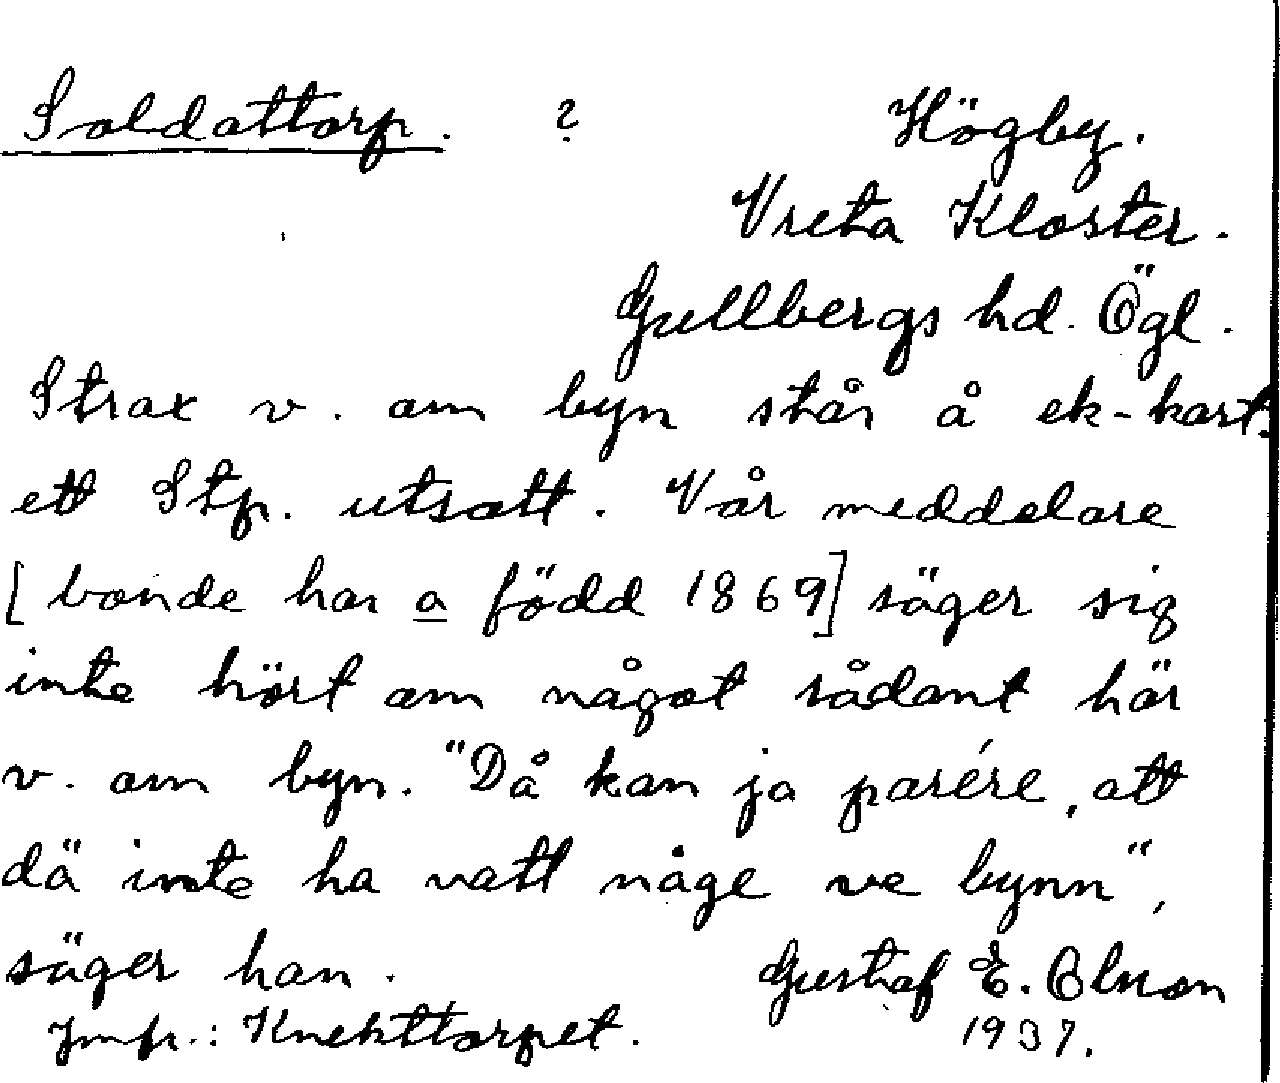 Soldattorp. ? Högby.
Vreta Kloster.
Gullbergs hd. Ögl.
Strax v. om byn står å ek-kart.
ett Stp. utsatt. Vår meddelare
[bonde har a född 1869] säger sig
inte hört om något sådant här
v. om byn. "Då kan ja parére, att
dä inte ha vatt någe ve bynn",
säger han. Gustaf E. Olsson
Jmfr.: Knekttorpet. 1937.